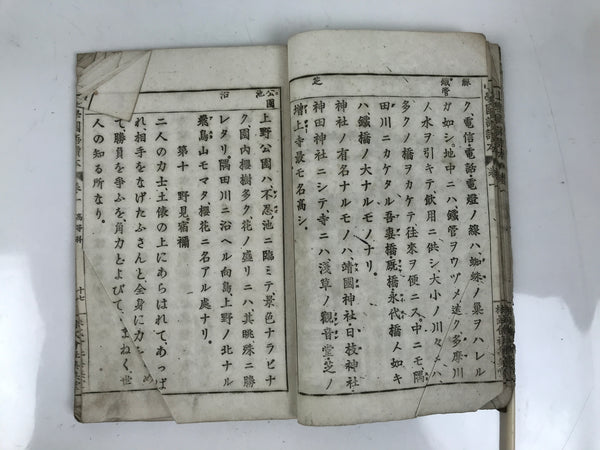 ク電信電話電燈ノ線ハ、蜘蛛ノ巣ヲハレル
ガ如シ。地中ニハ、鐵管ヲウヅメ遠ク多摩川
ノ水ヲ引キテ、飲用ニ供シ大小ノ川々ニハ、
多クノ橋ヲカケテ往來ヲ便ニス。中ニモ隅
田川ニカケタル吾妻橋厩橋永代橋人如キ
ハ、鐵橋ノ大ナルモノナリ。
神社ノ有名ナルモノハ、靖國神社日枝神社
神田神社ニシテ、寺ニハ、淺草ノ觀音堂芝ノ
増上寺最モ名高シ。
蘇
鐵管
芝
上野公園ハ、不忍池ニ臨ミテ、景色ナラビナ
ク、園内櫻樹多ク花ノ盛リニハ其眺殊ニ勝
レタリ。隅田川ニ沿ヘル向島上野ノ北ナル
飛鳥山モマタ櫻花ニ名アル處ナリ。
第十 野見宿禰
二人の力士土俵の上にあらはれて、あっぱ
れ、相手をなげたふさんと、全身に力を
て勝負を爭ふを、角力とよびて、まねく、世
人の知る所なり。
公園
池
沿
高等科
十七